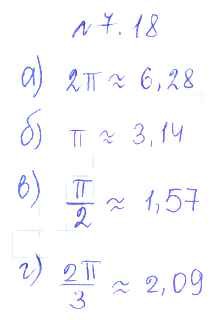 № 7.18
а) 2π ≈ 6,28
б) π ≈ 3,14
в) π/2 ≈ 1,57
г) 2π/3 ≈ 2,09